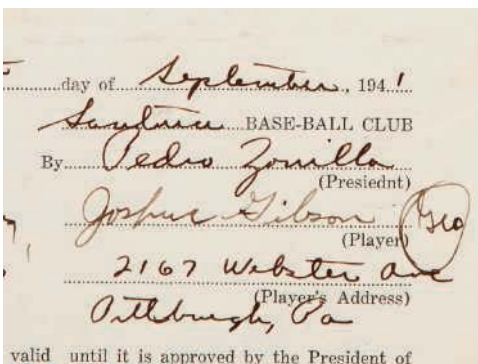 day of September, 1941
Santurce BASE-BALL CLUB
By Pedro Zorilla
(Presiednt)
Joshua Gibson
(Player)
2167 Webster Ave
(Player's Address)
Pittburgh, Pa
valid until it is approved by the President of